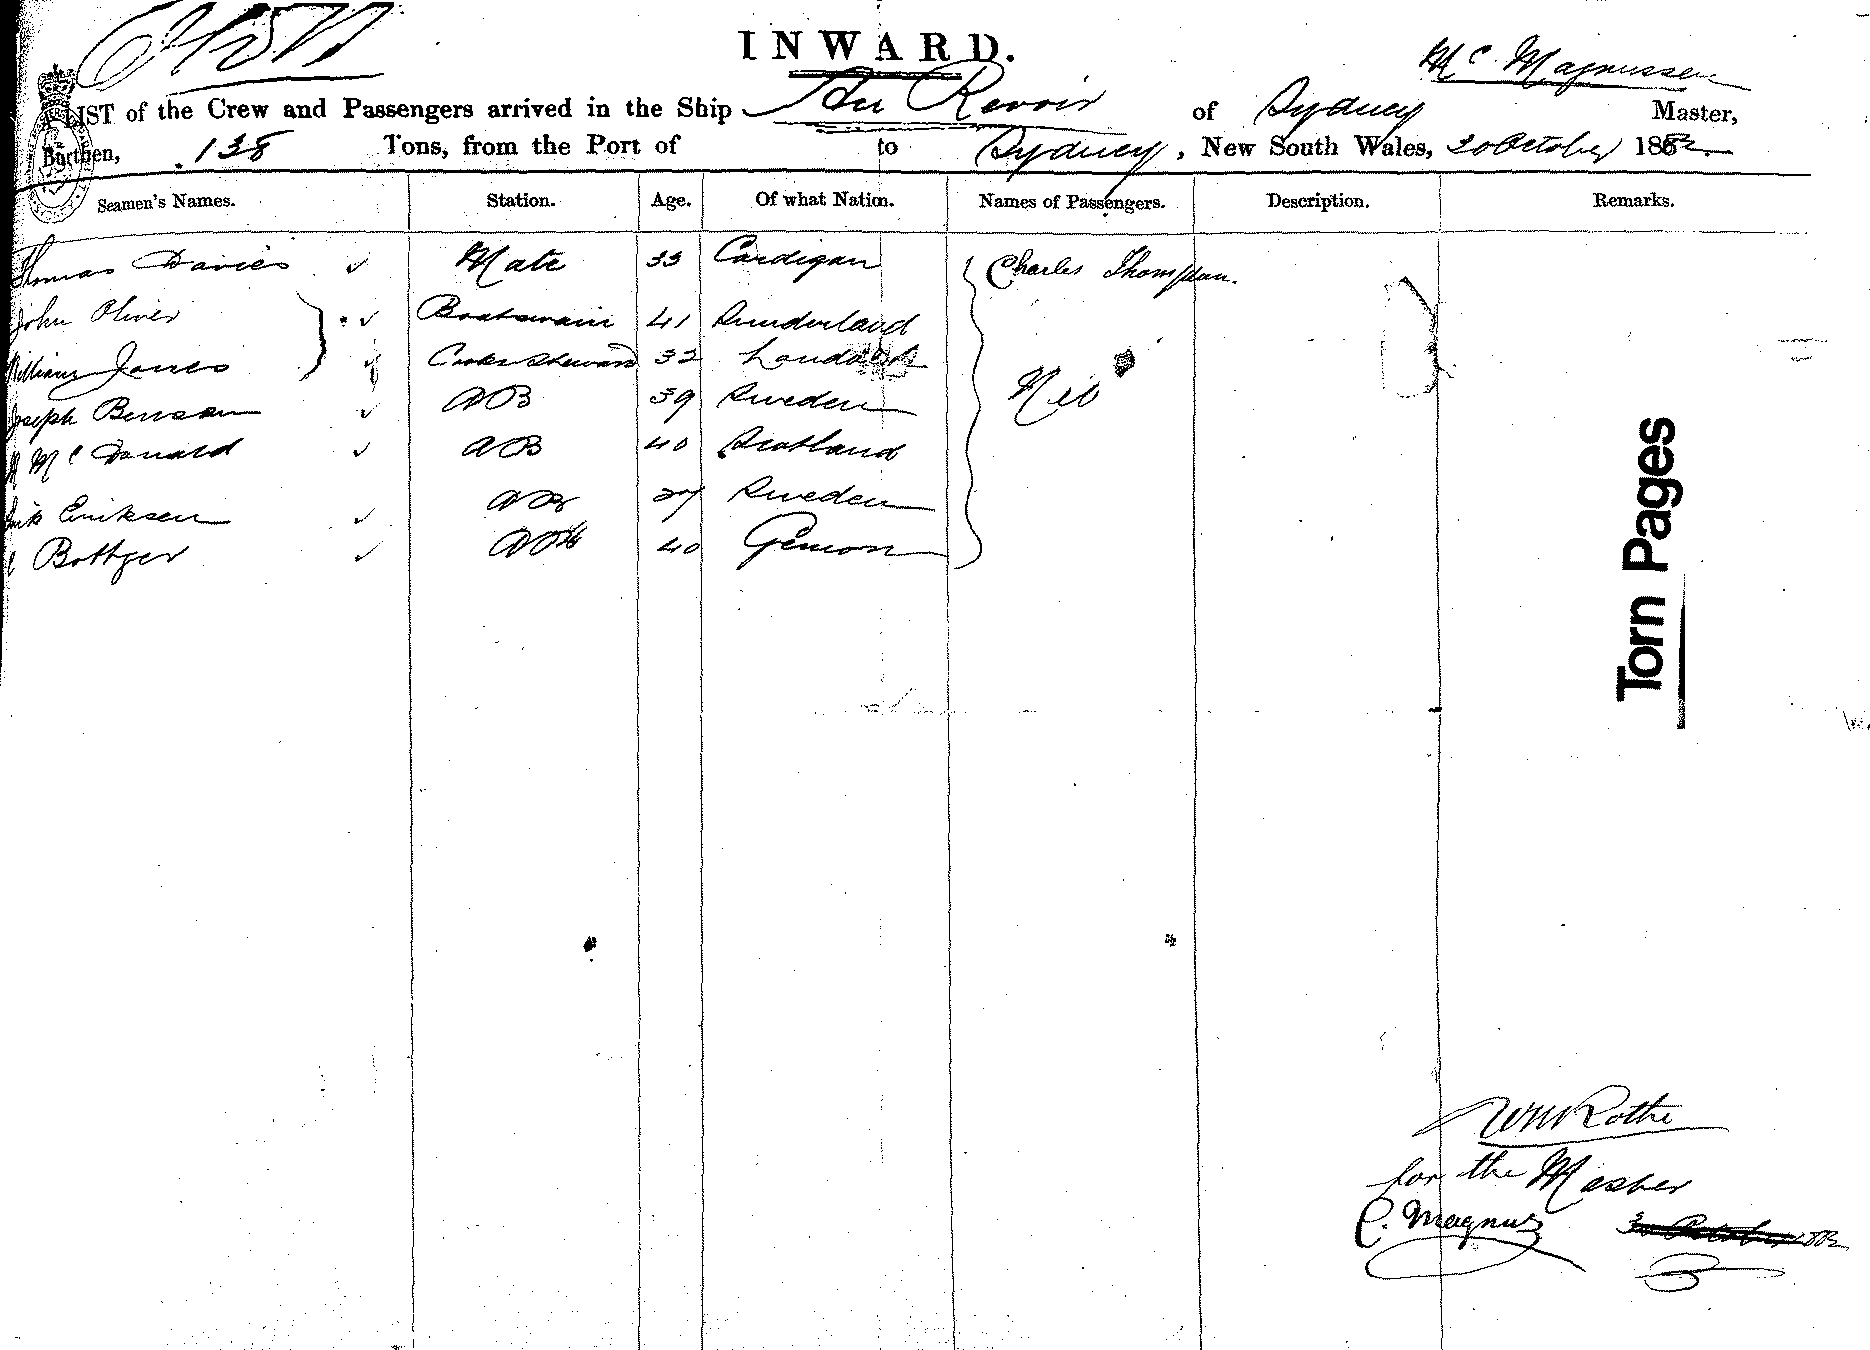 INWARD.
Mc. Magnussen
LIST of the Crew and Passengers arrived in the Ship Au Revoir of Sydney Master,
Burthen, 138 Tons, from the Port of to Sydney, New South Wales, 30 October 1882
Seamen's Names. Station. Age. Of what Nation. Names of Passengers. Description. Remarks.
Thomas Davies Mate 33 Cardigan Charles Thompson.
John Oliver Boatswain 41 Sunderland
William Jones Cook & Steward 32 London
Nil
Joseph Benson AB 39 Sweden
Mc Donald AB 40 Scotland
Eriksen AB 27 Sweden
Bottger 40 German
Torn Pages
Wm Rothe
for the Master
C. Magnus